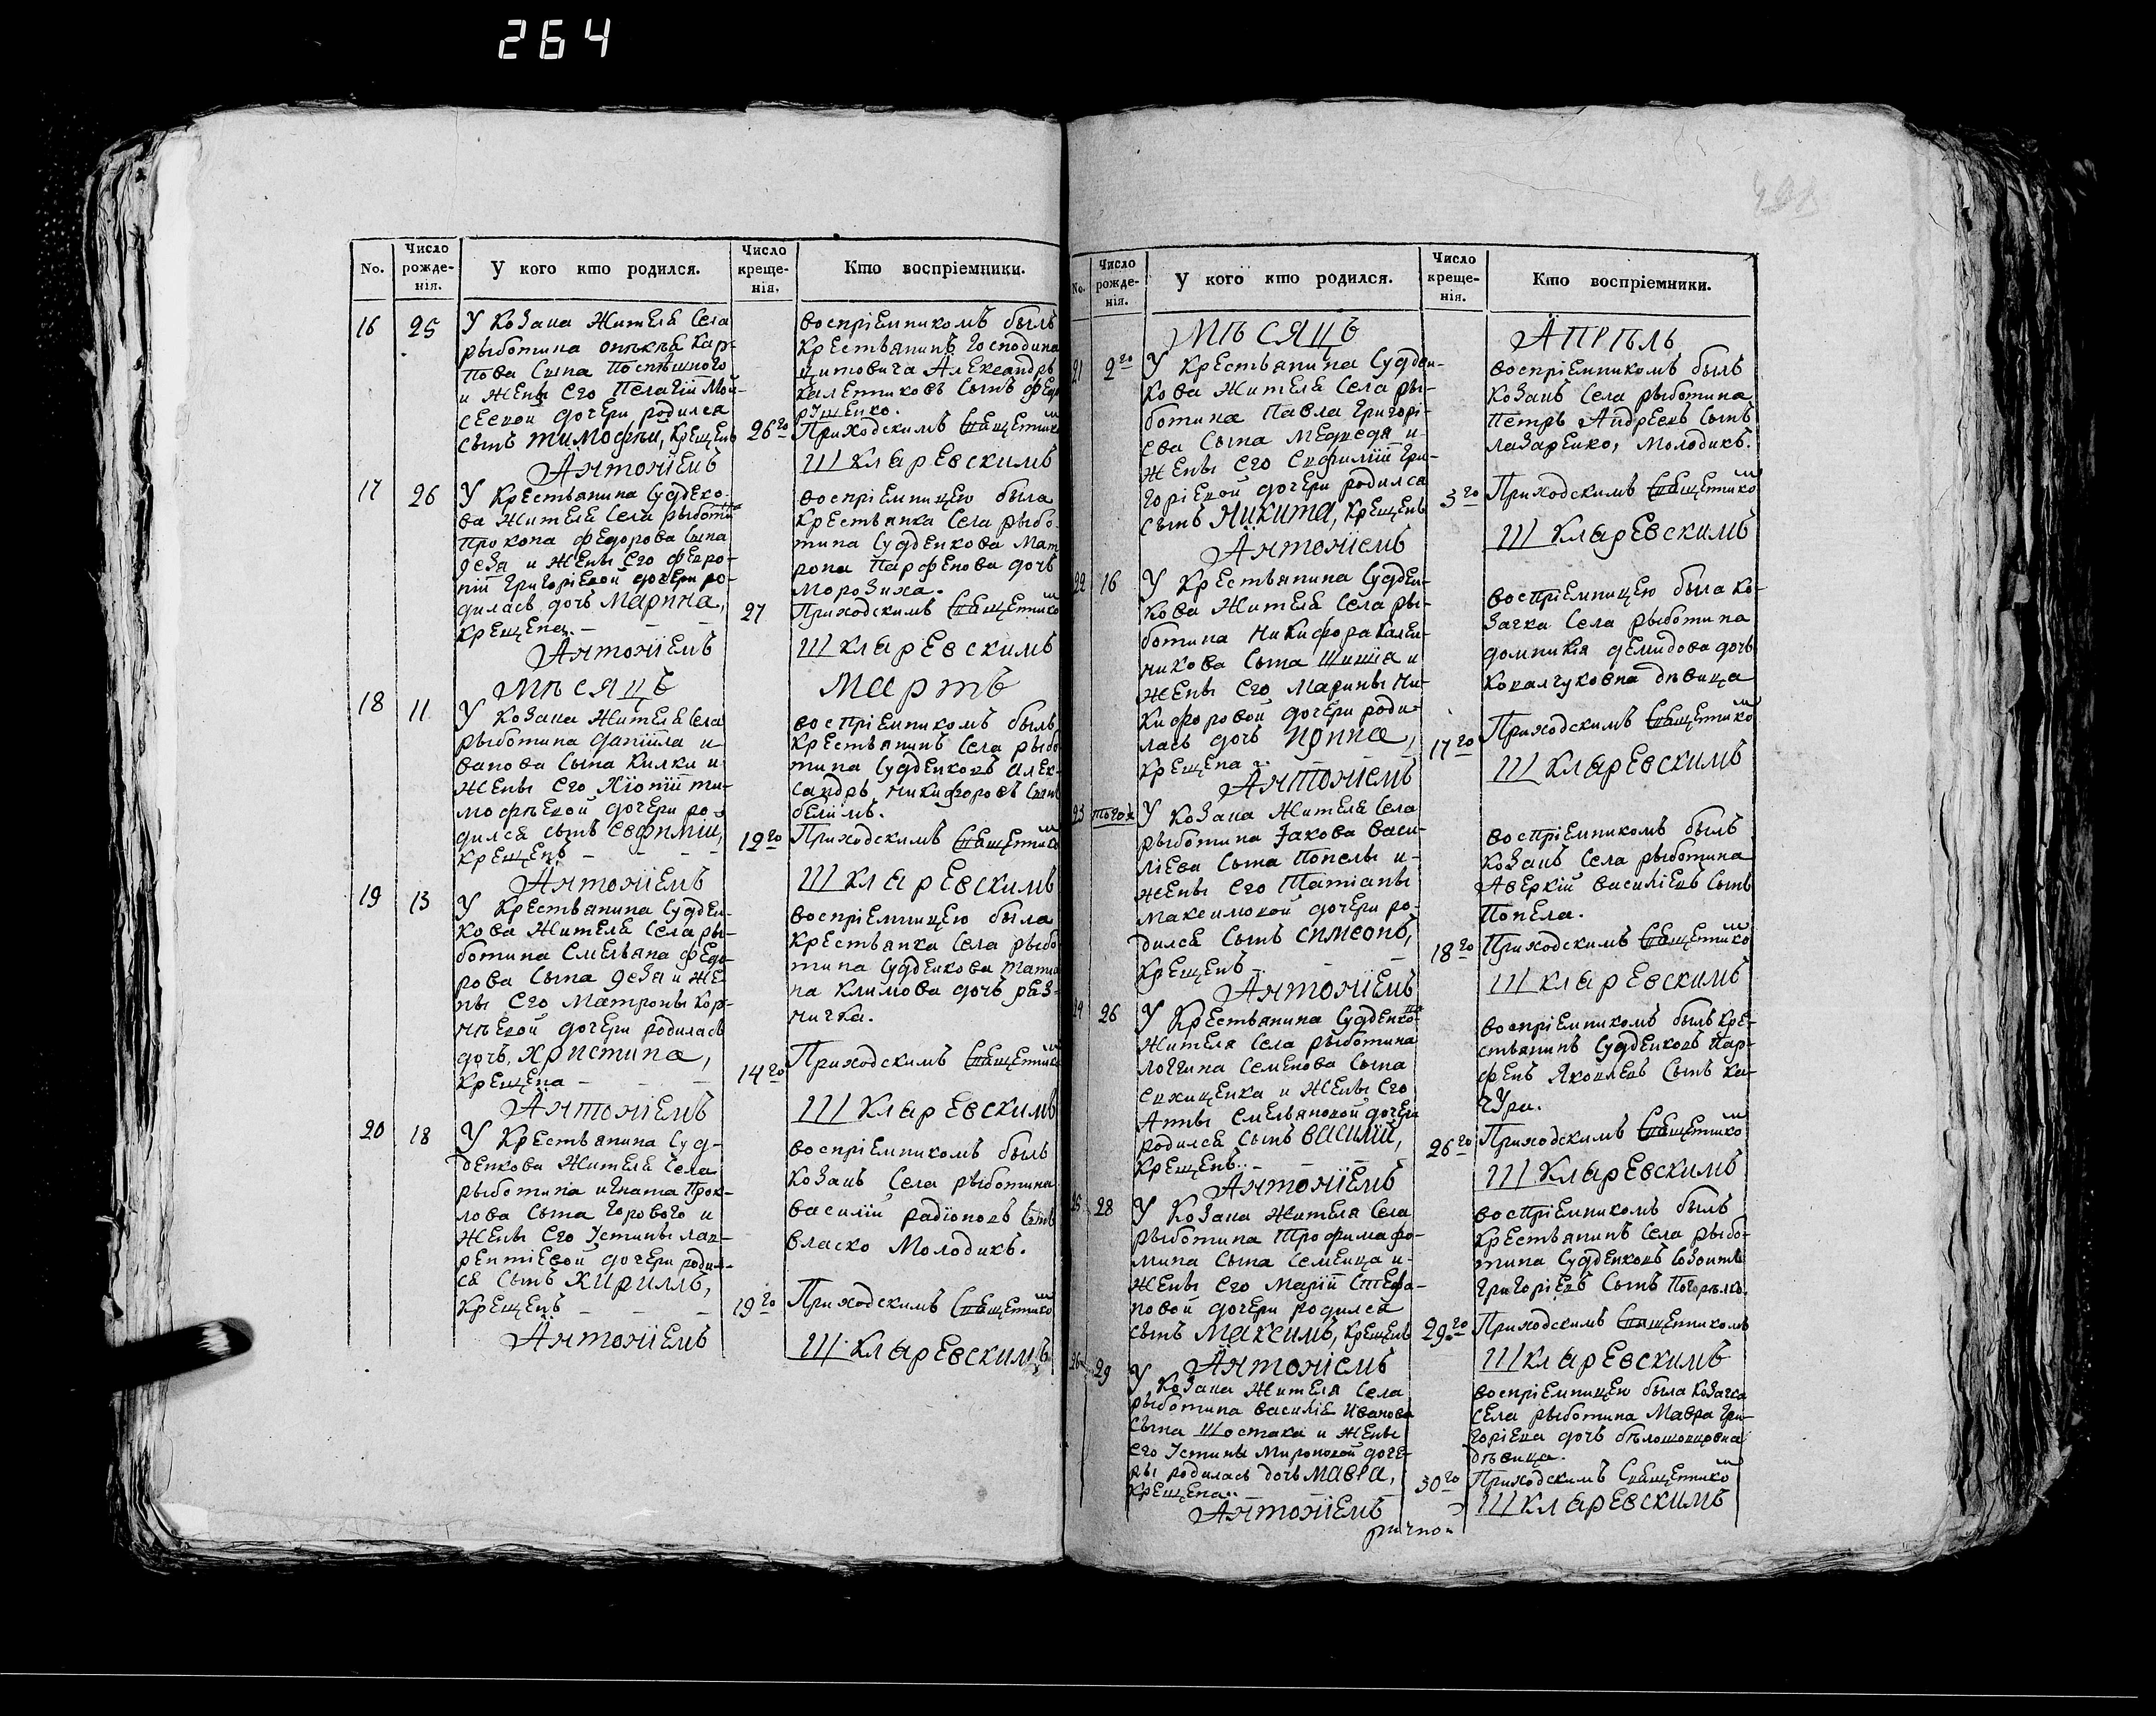 264
No.
Число рожденія.
У кого кто родился.
Число крещенія.
Кто воспріемники.
16 25
У Козака жителя Села
рыботина
пова Сына Поспѣшного
и жены Его Пелагіи Мой-
сеевой дочери родился
сынъ Тимофей, крещенъ
26го
Антоніемъ
воспріемникомъ былъ
Крестьянинъ Господина
Александръ
Сынъ
Приходскимъ Священникомъ
Шкларевскимъ
17 26
У Крестьянина Судденко-
ва жителя Села рыботина
Прокопа Федорова Сына
деза и жены Его Февро-
ніи Григоріевой дочери ро-
дилась дочь Марина,
крещена
27
Антоніемъ
воспріемницею была
Крестьянка Села рыбо-
тина Судденкова Мат
рона Парфенова дочь
Морозиха.
Приходскимъ Священникомъ
Шкларевскимъ
Мѣсяцъ Мартъ
18 11
У Козака жителя Села
рыботина Даніила и-
ванова Сына Килки и
жены Его Хіоніи ти-
мофѣевой дочери ро-
дился сынъ Евфимій,
крещенъ
12го
Антоніемъ
воспріемникомъ былъ
Крестьянинъ Села рыбо
тина Судденковъ алек-
сандръ никифоровъ Сынъ
Приходскимъ Священникомъ
Шкларевскимъ
19 13
У Крестьянина Судден-
кова жителя Села ры-
ботина Емельяна Федо-
рова Сына деза и же
ны Его Матроны Кор-
нѣевой дочери родилась
дочь, Христина,
крещена
14го
Антоніемъ
воспріемницею была
Крестьянка Села рыбо
тина Судденкова Татія
на Климова дочь рез-
ничка.
Приходскимъ Священникомъ
Шкларевскимъ
20 18
У Крестьянина Суд-
денкова жителя Села
рыботина игната Прок-
лова Сына Горового и
жены Его Устины лав-
рентіевой дочери родил-
ся сынъ Кириллъ,
крещенъ
19го
Антоніемъ
воспріемникомъ былъ
Козакъ Села рыботина
василій радіоновъ Сынъ
власко Молодикъ.
Приходскимъ Священникомъ
Шкларевскимъ
No.
Число рожденія.
У кого кто родился.
Число крещенія.
Кто воспріемники.
Мѣсяцъ Апрѣль
21 2го
У Крестьянина Судден-
кова жителя Села ры-
ботина Павла Григорі-
ева Сына Медведя и
жены Его Гри-
горіевой дочери родился
сынъ Никита, крещенъ
3го
Антоніемъ
воспріемникомъ былъ
Козакъ Села рыботина
Петръ Андреевъ Сынъ
лазаренко, Молодикъ.
Приходскимъ Священникомъ
Шкларевскимъ
22 16
У Крестьянина Судден-
кова жителя Села ры-
ботина Никифора Кален-
никова Сына Шиша и
жены Его Марины Ни-
кифоровой дочери роди-
лась дочь Ирина,
крещена
17го
Антоніемъ
воспріемницею была ко-
зачка Села рыботина
домникія демидова дочь
Ковалчуковна дѣвица
Приходскимъ Священникомъ
Шкларевскимъ
23 тогож
У Козака жителя Села
рыботина Іакова Васи-
ліева Сына Попелы и
жены Его Татіаны
Максимовой дочери ро-
дился Сынъ Симеонъ,
крещенъ
18го
Антоніемъ
воспріемникомъ былъ
козакъ Села рыботина
Аверкій василіевъ Сынъ
Попела.
Приходскимъ Священникомъ
Шкларевскимъ
24 26
У Крестьянина Судденкова
жителя Села рыботина
логгина Семенова Сына
и жены Его
Анны Емельяновой дочери
родился сынъ Василій,
крещенъ
26го
Антоніемъ
воспріемникомъ былъ кре-
стьянинъ Судденковъ Пар-
фенъ Яковлевъ Сынъ Ка-
чури.
Приходскимъ Священникомъ
Шкларевскимъ
25 28
У Козака жителя Села
рыботина Трофима Фо-
мина Сына Семенца и
жены Его Маріи Стефа-
новой дочери родился
сынъ Максимъ, крещенъ
29го
Антоніемъ
воспріемникомъ былъ
Крестьянинъ Села рыбо-
тина Судденковъ Созонтъ
Григоріевъ Сынъ
Приходскимъ Священникомъ
Шкларевскимъ
26 29
У Козака жителя Села
рыботина василіе Иванова
сына Шостака и жены
его Устины Мироновой доче-
ри родилась дочь Мавра,
крещена
30го
Антоніемъ
воспріемницею была козачка
Села рыботина Мавра Гри-
горіева дочь
дѣвица.
Приходскимъ Священникомъ
Шкларевскимъ